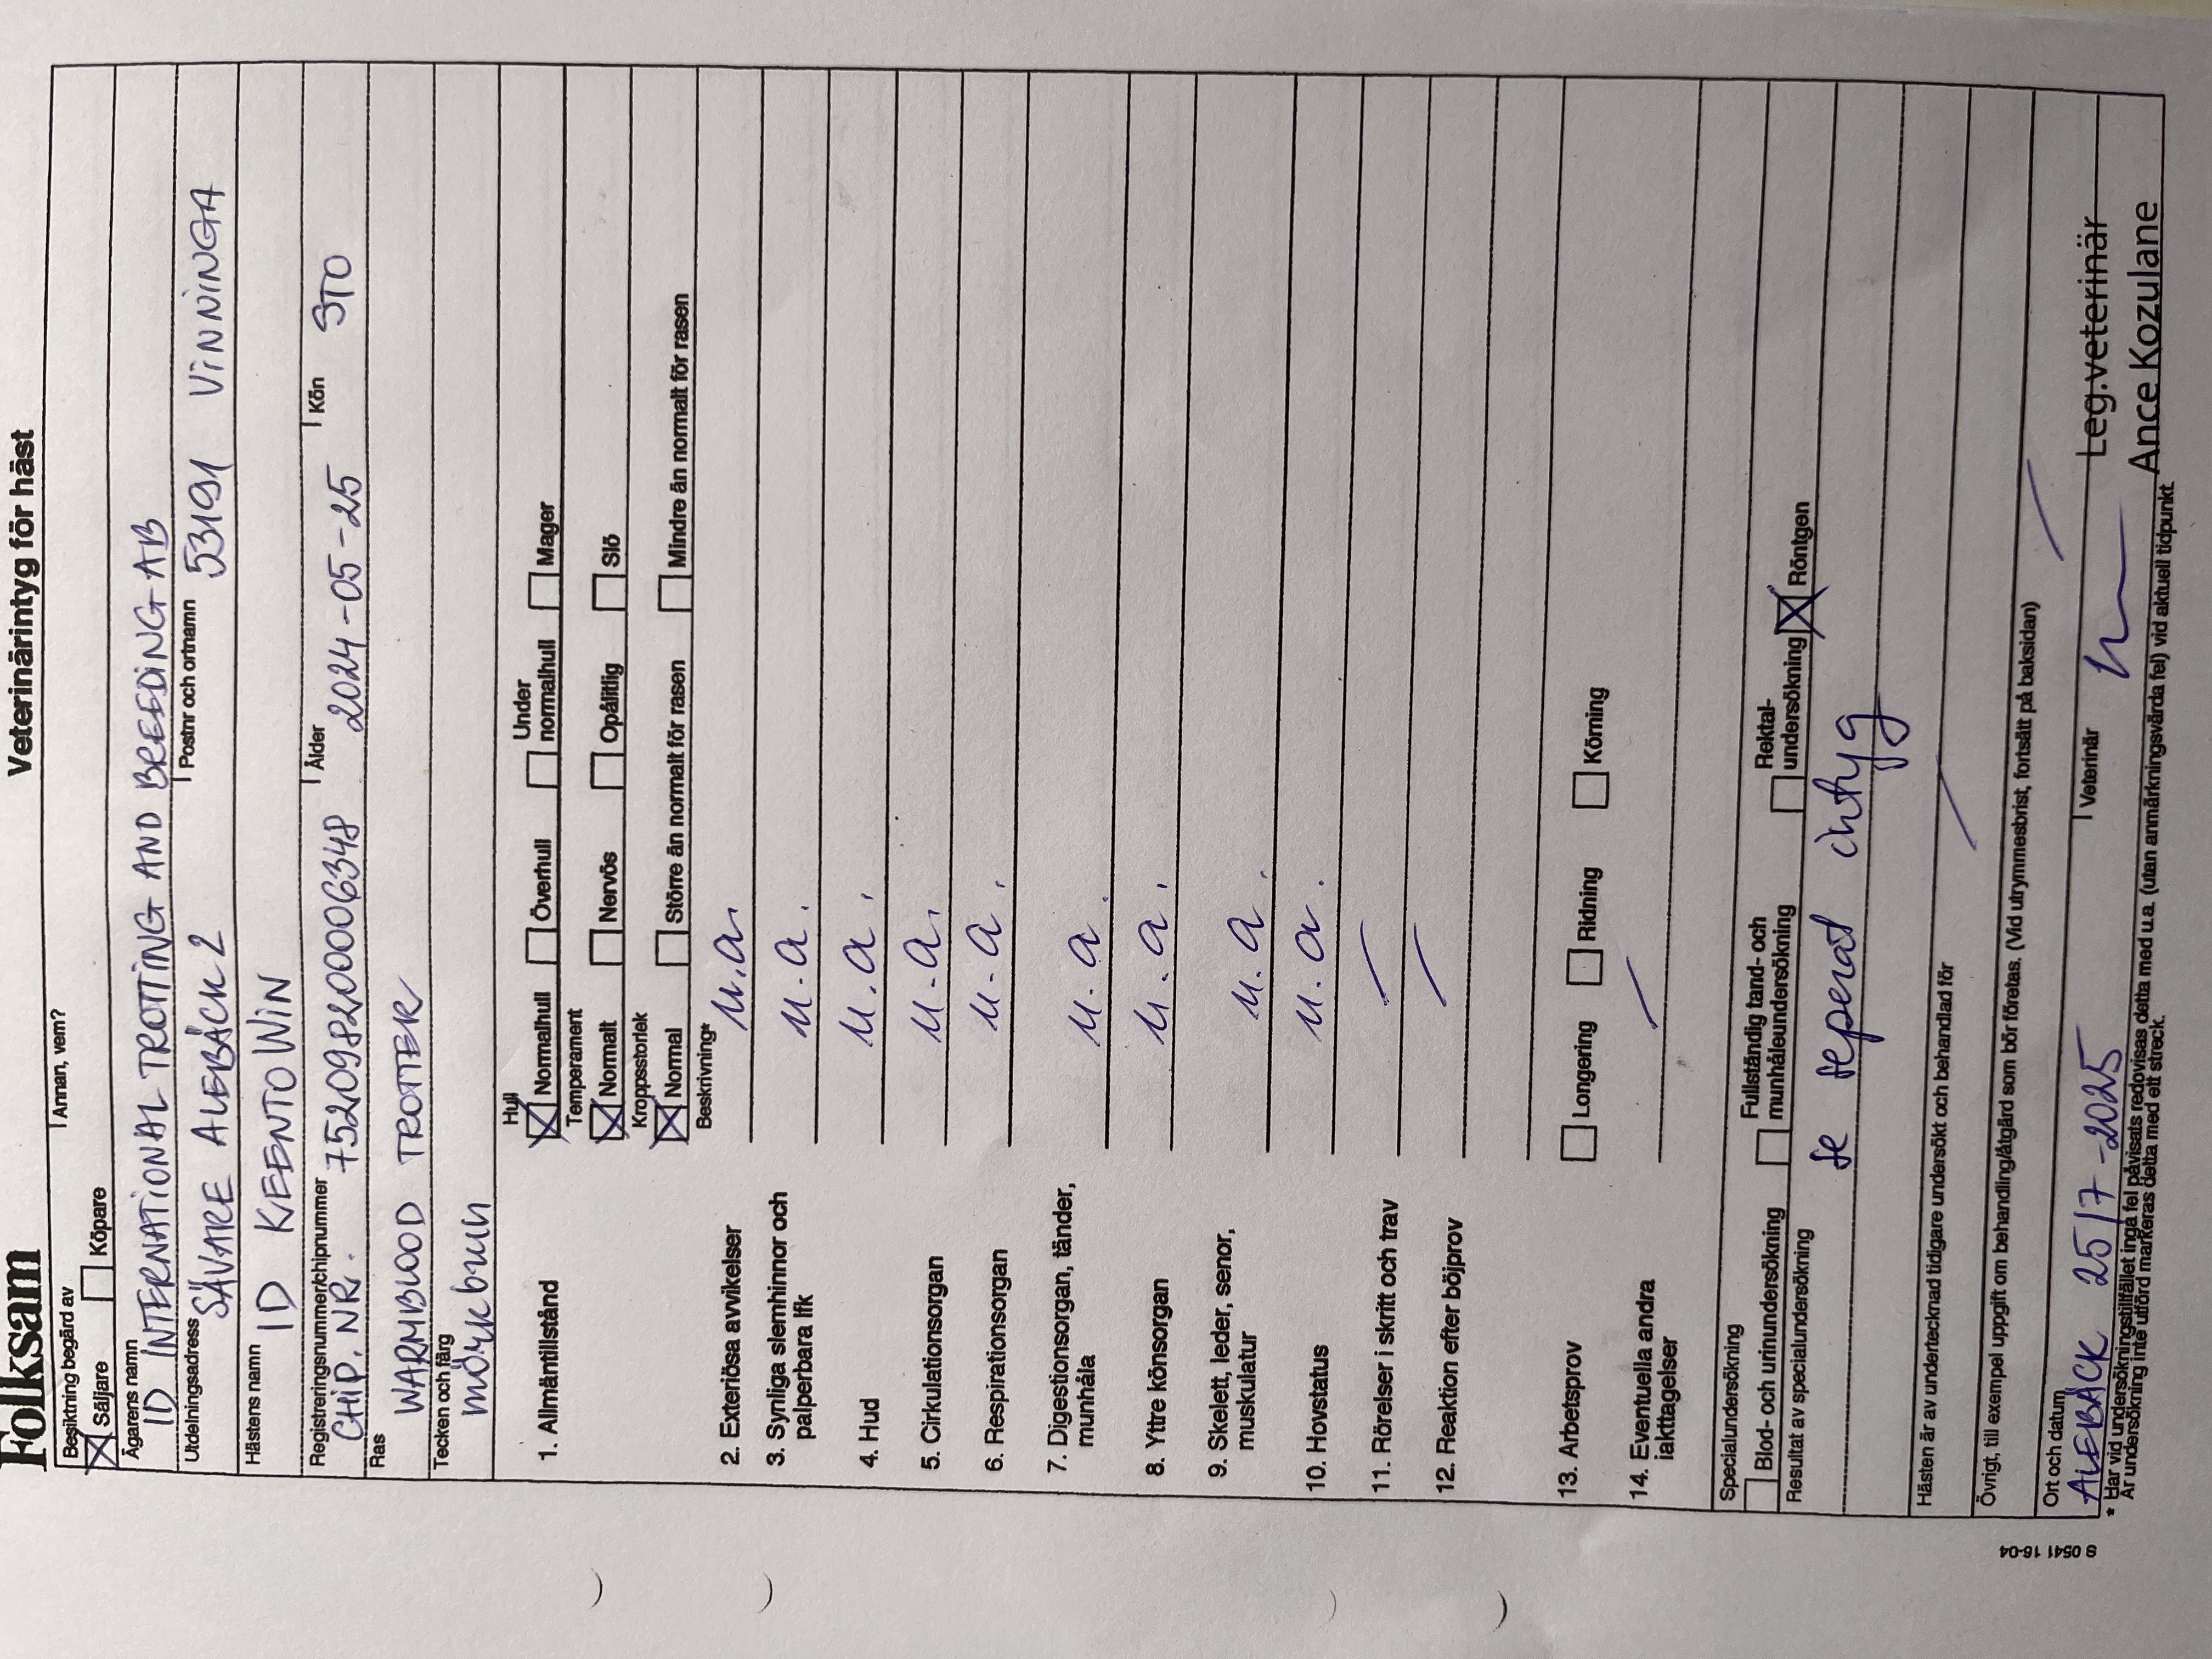 Folksam
Veterinärintyg för häst
Besiktning begärd av
Säljare Köpare Annan, vem?
Ägarens namn
ID INTERNATIONAL TROTTING AND BREEDING AB
Utdelningsadress Postnr och ortnamn
SÄVARE ALEBÄCK 2 53191 VINNINGA
Hästens namn
ID KEENTO WIN
Registreringsnummer/chipnummer Ålder Kön
CHIP. NR. 752098200006348 2024-05-25 STO
Ras
WARMBLOOD TROTTER
Tecken och färg
mörkbrun
1. Allmäntillstånd
Hull
Normalhull Överhull Under normalhull Mager
Temperament
Normalt Nervös Opålitlig Slö
Kroppsstorlek
Normal Större än normalt för rasen Mindre än normalt för rasen
Beskrivning*
2. Exteriösa avvikelser u.a.
3. Synliga slemhinnor och
palperbara lfk u.a.
4. Hud u.a.
5. Cirkulationsorgan u.a.
6. Respirationsorgan u.a.
7. Digestionsorgan, tänder,
munhåla u.a.
8. Yttre könsorgan u.a.
9. Skelett, leder, senor,
muskulatur u.a.
10. Hovstatus u.a.
11. Rörelser i skritt och trav —
12. Reaktion efter böjprov —
13. Arbetsprov Longering Ridning Körning
14. Eventuella andra
iakttagelser —
Specialundersökning
Blod- och urinundersökning Fullständig tand- och munhåleundersökning Rektal-undersökning Röntgen
Resultat av specialundersökning
se seperat intyg
Hästen är av undertecknad tidigare undersökt och behandlad för
—
Övrigt, till exempel uppgift om behandling/åtgärd som bör företas. (Vid utrymmesbrist, fortsätt på baksidan)
—
Ort och datum Veterinär
ALEBÄCK 25/7-2025
Leg.veterinär
Ance Kozulane
* Har vid undersökningstillfället inga fel påvisats redovisas detta med u.a. (utan anmärkningsvärda fel) vid aktuell tidpunkt.
Är undersökning inte utförd markeras detta med ett streck.
S 0541 16-04